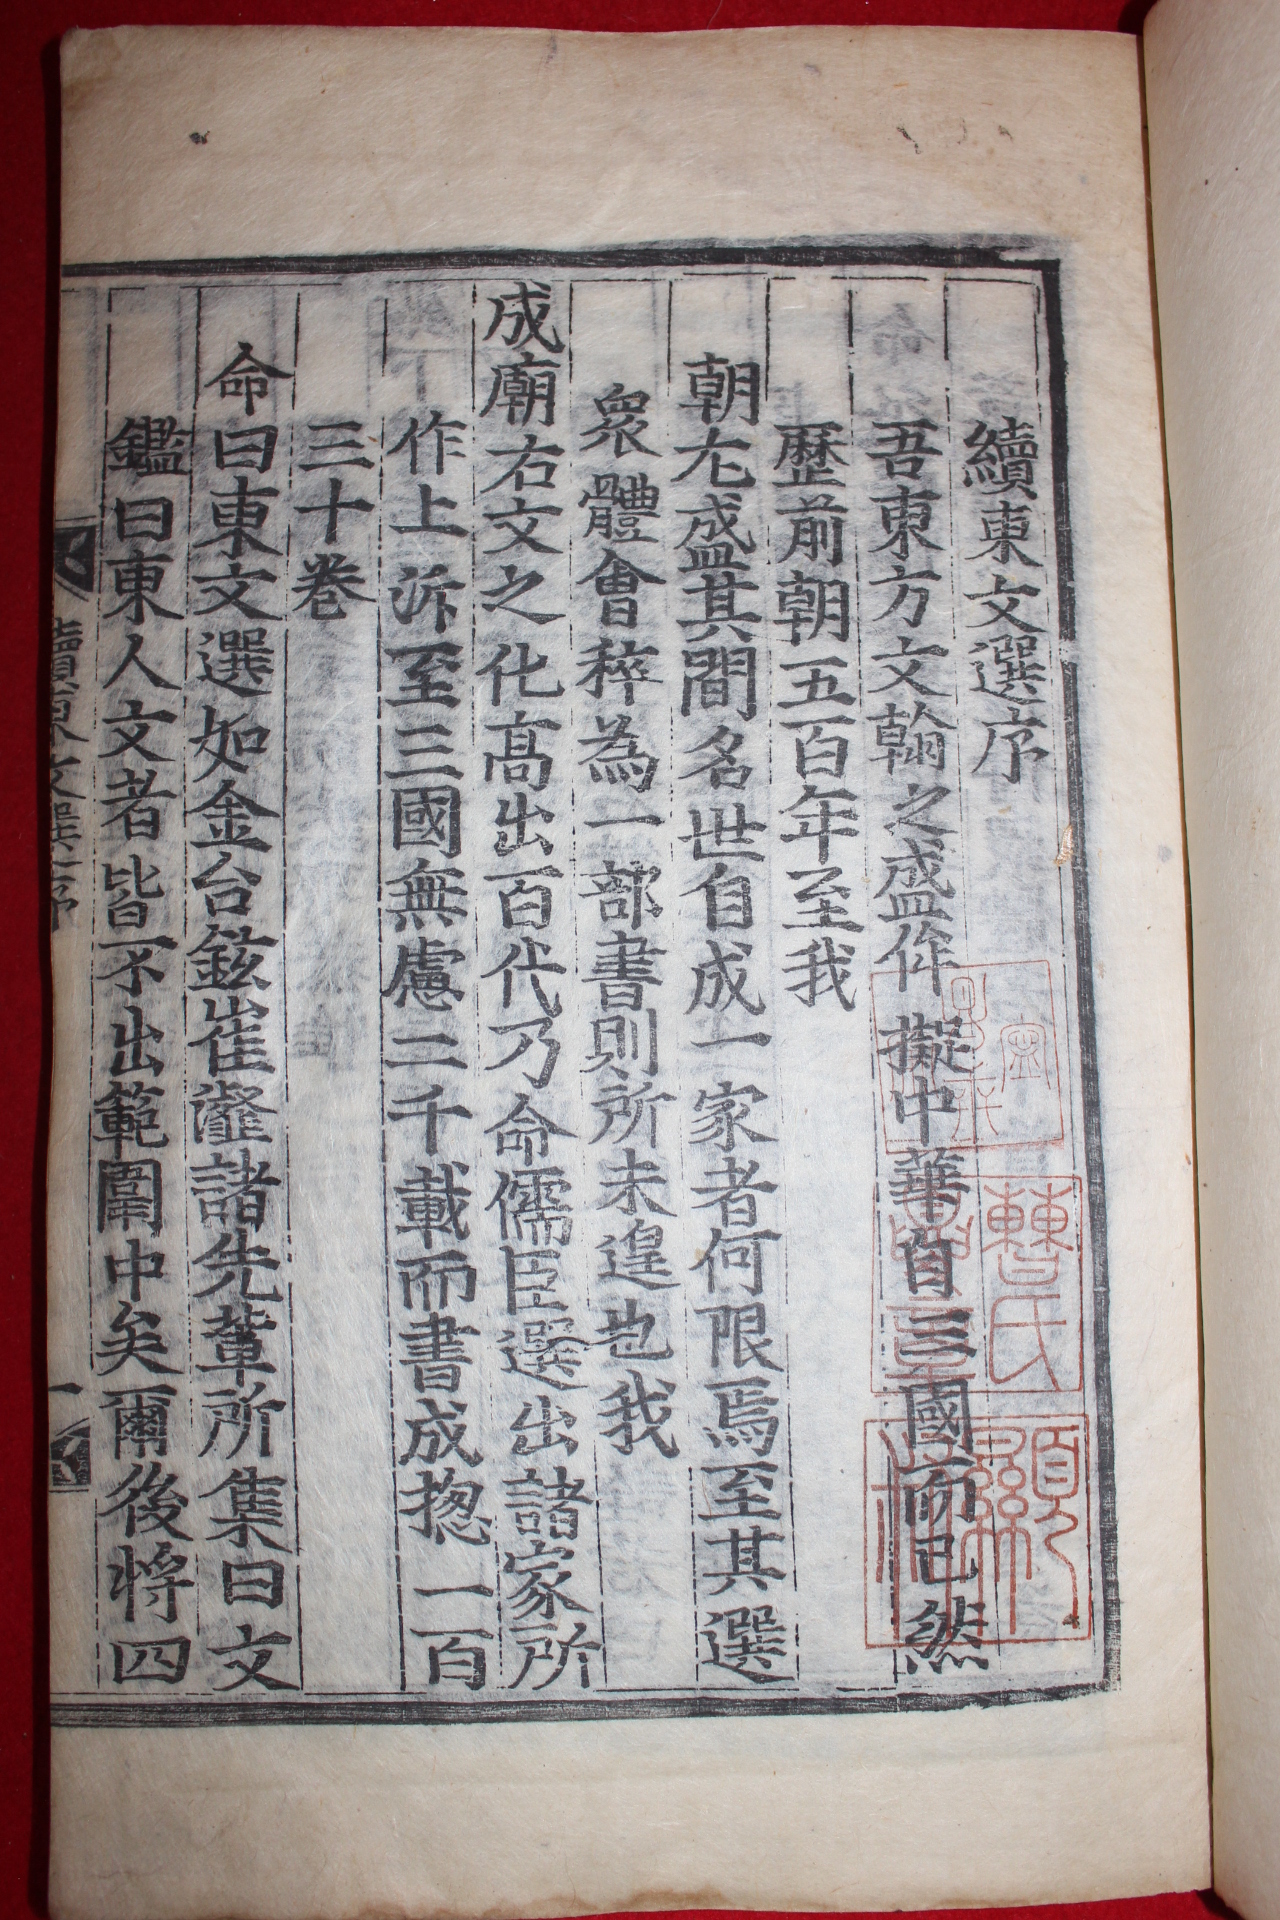 續東文選序
吾東方文翰之盛侔擬中華自三國而已然
歷前朝五百年至我
朝尤盛其間名世自成一家者何限焉至其選
衆體會稡為一部書則所未遑也我
成廟右文之化高出百代乃命儒臣選出諸家所
作上泝至三國無慮二千載而書成揔一百
三十卷
命曰東文選如金台鉉崔瀣諸先輩所集曰文
鑑曰東人文者皆不出範圍中矣爾後將四
續東文選序
一
氏